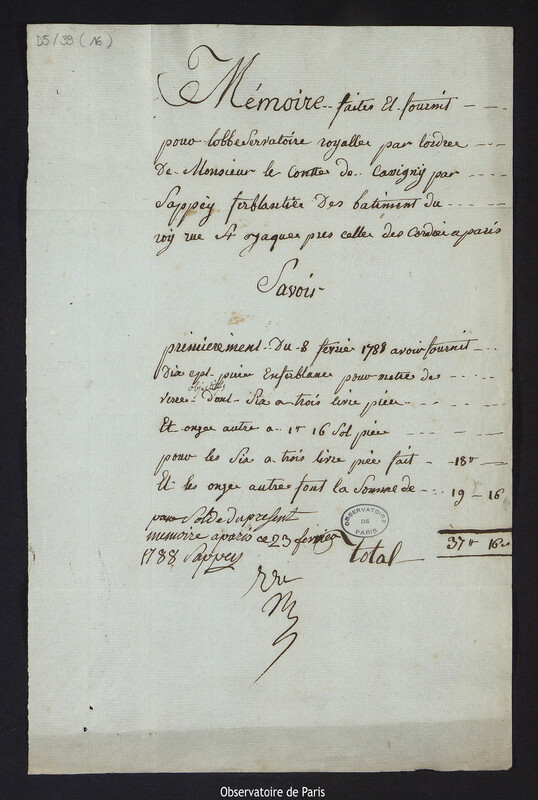 D5/39 (16)
Mémoire faites Et fournit
pour lobbeservatoire royalle par lordre
De Monsieur le Comte de Cassigny par
Sappey ferblantire Des batiment du
roy rue St jaque pres celle des Cordie a paris
Savoir
premierement Du 8 fevrie 1788 avoir fournit
Dix sept piece Enferblanc pour metre de
objectifs
verre dont Six a trois livre piece
Et onze autre a 1tt 16 Sol piece
pour les Six a trois livre piece fait 18tt
Et les onze autre font la Somme de 19 - 16
pour Solde du present
memoire a paris ce 23 fevrier
1788 Sappey
total 37tt 16s
OBSERVATOIRE DE PARIS
Vu
Observatoire de Paris